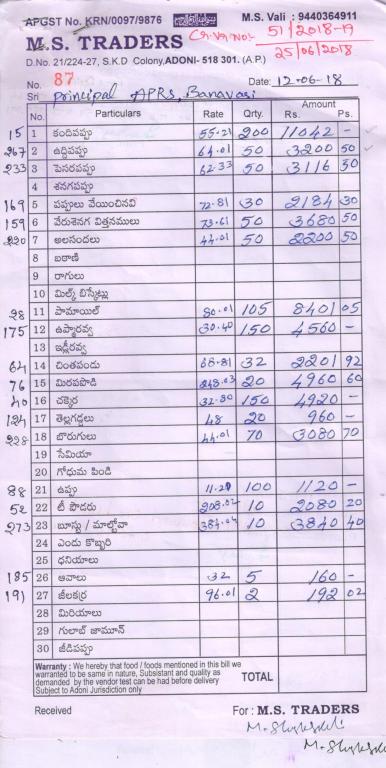 APGST No. KRN/0097/9876 M.S. Vali : 9440364911
M.S. TRADERS Cr.Vr.No: 51/2018-19
D.No. 21/224-27, S.K.D Colony, ADONI- 518 301. (A.P.) 25/06/2018
No. 87 Date: 12-06-18
Sri Principal APRS, Banavasi
No. Particulars Rate Qrty. Amount
Rs. Ps.
15 1 కందిపప్పు 55.21 200 11042 -
267 2 ఉద్దిపప్పు 64.01 50 3200 50
233 3 పెసరపప్పు 62.33 50 3116 50
4 శనగపప్పు
169 5 పప్పులు వేయించినవి 72.81 30 2184 30
159 6 వేరుశెనగ విత్తనములు 73.61 50 3680 50
220 7 అలసందలు 44.01 50 2200 50
8 బఠాణి
9 రాగులు
10 మిల్క్ బిస్కెట్లు
28 11 పామాయిల్ 80.01 105 8401 05
175 12 ఉప్మారవ్వ 30.40 150 4560 -
13 ఇడ్లీరవ్వ
64 14 చింతపండు 68.81 32 2201 92
76 15 మిరపపొడి 248.03 20 4960 60
40 16 చక్కెర 32.80 150 4920 -
124 17 తెల్లగడ్డలు 48 20 960 -
228 18 బొరుగులు 44.01 70 3080 70
19 సేమియా
20 గోధుమ పిండి
88 21 ఉప్పు 11.20 100 1120 -
52 22 టీ పౌడరు 208.02 10 2080 20
273 23 బూస్టు / మాల్టోవా 384.04 10 3840 40
24 ఎండు కొబ్బరి
25 ధనియాలు
185 26 ఆవాలు 32 5 160 -
191 27 జీలకర్ర 96.01 2 192 02
28 మిరియాలు
29 గులాబ్ జామూన్
30 జీడిపప్పు
Warranty : We hereby that food / foods mentioned in this bill we
warranted to be same in nature, Subsistant and quality as
demanded by the vendor test can be had before delivery
Subject to Adoni Jurisdiction only
TOTAL
Received For : M.S. TRADERS